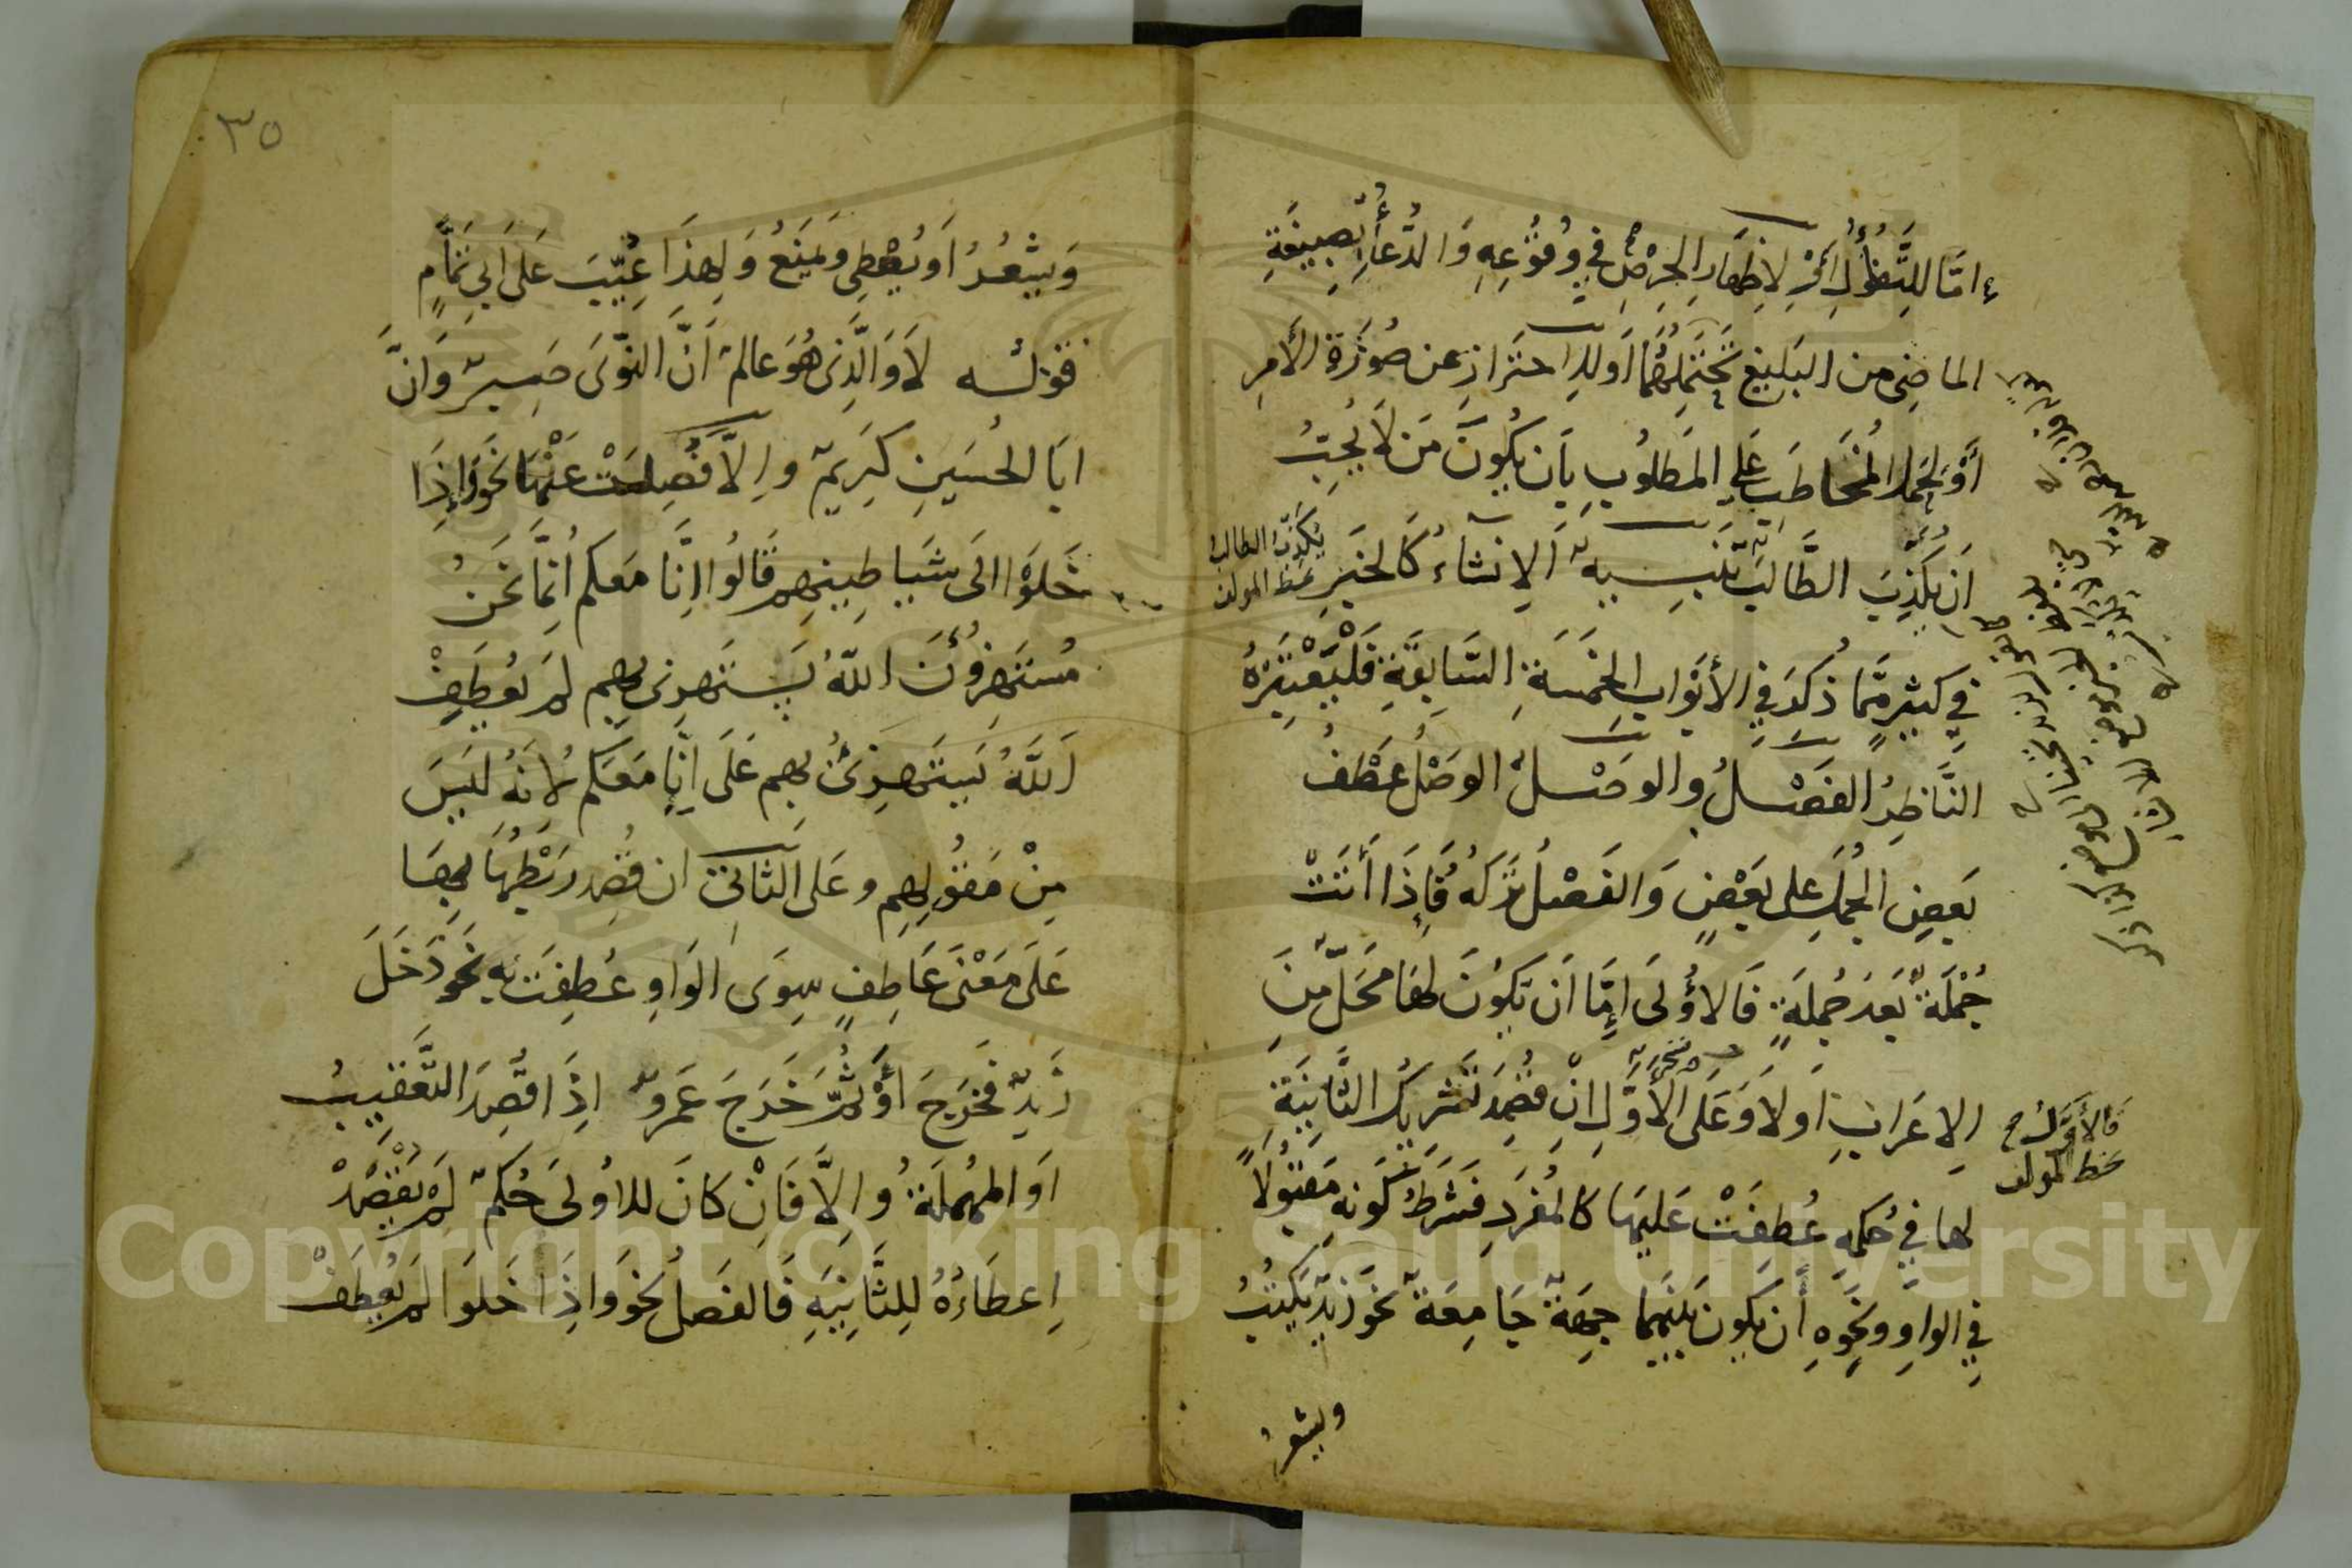 اِمَّا للِتَّفَاؤُلِ أَوْ لِاِظْهَارِ الحِرْصِ فِي وُقُوْعِهِ وَالدُّعَاءُ بِصِيغَةِ
الماضِي من البَلِيغِ يَحْتَمِلُهُمَا اَو لِلاِحتَرازِ عن صُورَةِ الأَمرِ
أَوْ لِحَملِ المُخَاطَبِ عَلى المَطلُوبِ بِاَن يَكُونَ مَن لَا يُحِبُّ
اَن يُكَذَّبَ الطَّالِبُ تَنبِيهٌ اَلاِنشَاءُ كَالخَبَرِ
يُكَذِّبَ الطالبَ
بخط المولف
في كَثِيرٍ مِمَّا ذُكِرَ فِي الأَبْوَابِ الخَمسَةِ السَّابِقَةِ فَلْيَعْتَبِرْهُ
النَّاظِرُ الفَصْلُ والوصْلُ الوصْلُ عَطْفُ
بَعضِ الجُمَلِ على بَعْضٍ وَالفَصْلُ تَركُهُ فَاِذَا أَتَتْ
جُمْلَةٌ بَعدَ جُملَةٍ فَالاُولَى اِمَّا اَن يَكُونَ لَهَا مَحَلٌّ مِنَ
الاِعَرابِ اَو لَا وَعَلَى الأَوَّلِ اِنْ قُصِدَ تَشرِيكُ الثَّانِيَةِ
فالأَوَّلُ
بخط المولف
لها في حُكمِهِ عُطِفَتْ عَليهَا كالمُفرَدِ فَشَرطُ كَونِهِ مَقبُولًا
فِي الواوِ ونَحْوِهِ أَن يَكُونَ بَينَهُما جِهَةٌ جَامِعَةٌ نحَو زَيدٌ يَكتُبُ
ويشعر
٣٥
وَيشْعُرُ اَو يُعْطِي وَيَمنَعُ وَلِهذَا عِيبَ عَلَى اَبِي تَمَّامٍ
قَولُه لَا وَالَّذِي هُوَ عالمٌ اَنَّ النَّوَى صَبِرٌ وَاَنَّ
اَبَا الحُسَينِ كَرِيمٌ وإِلَّا فُصِلَتْ عَنْهَا نَحوُ وَإِذَا
خَلَوْا اِلَى شَيَاطِينِهِم قَالُوا اِنَّا مَعَكم اِنَّمَا نَحْنُ
مُستَهزِؤُنَ اللّهُ يَستَهزِئ بِهِم لَم يُعطَفْ
اَللَّهُ يَستَهزِئُ بِهِم عَلَى اِنَّا مَعَكم لاَنَهُ لَيسَ
مِنْ مَقُولِهِم وعَلى الثَاني ان قُصِد رَبْطُهَا بِهَا
عَلَى مَعْنَى عَاطِفٍ سِوَى الوَاوِ عُطِفَت بِهِ نحَو دَخَلَ
زَيدٌ فَخَرَجَ أَوْ ثُمَّ خَرَجَ عَمرٌو اِذَا قُصِدَ التَّعْقِيبُ
اَو المُهملَةُ وِاِلَّا فَاِنْ كانَ للاُولَى حُكمٌ لَم يُقْصَدْ
اِعطَاءُهُ لِلثَّانِيَةِ فَالفَصلُ نحَو وَاذَا خَلَوا لَم يُعطَفْ